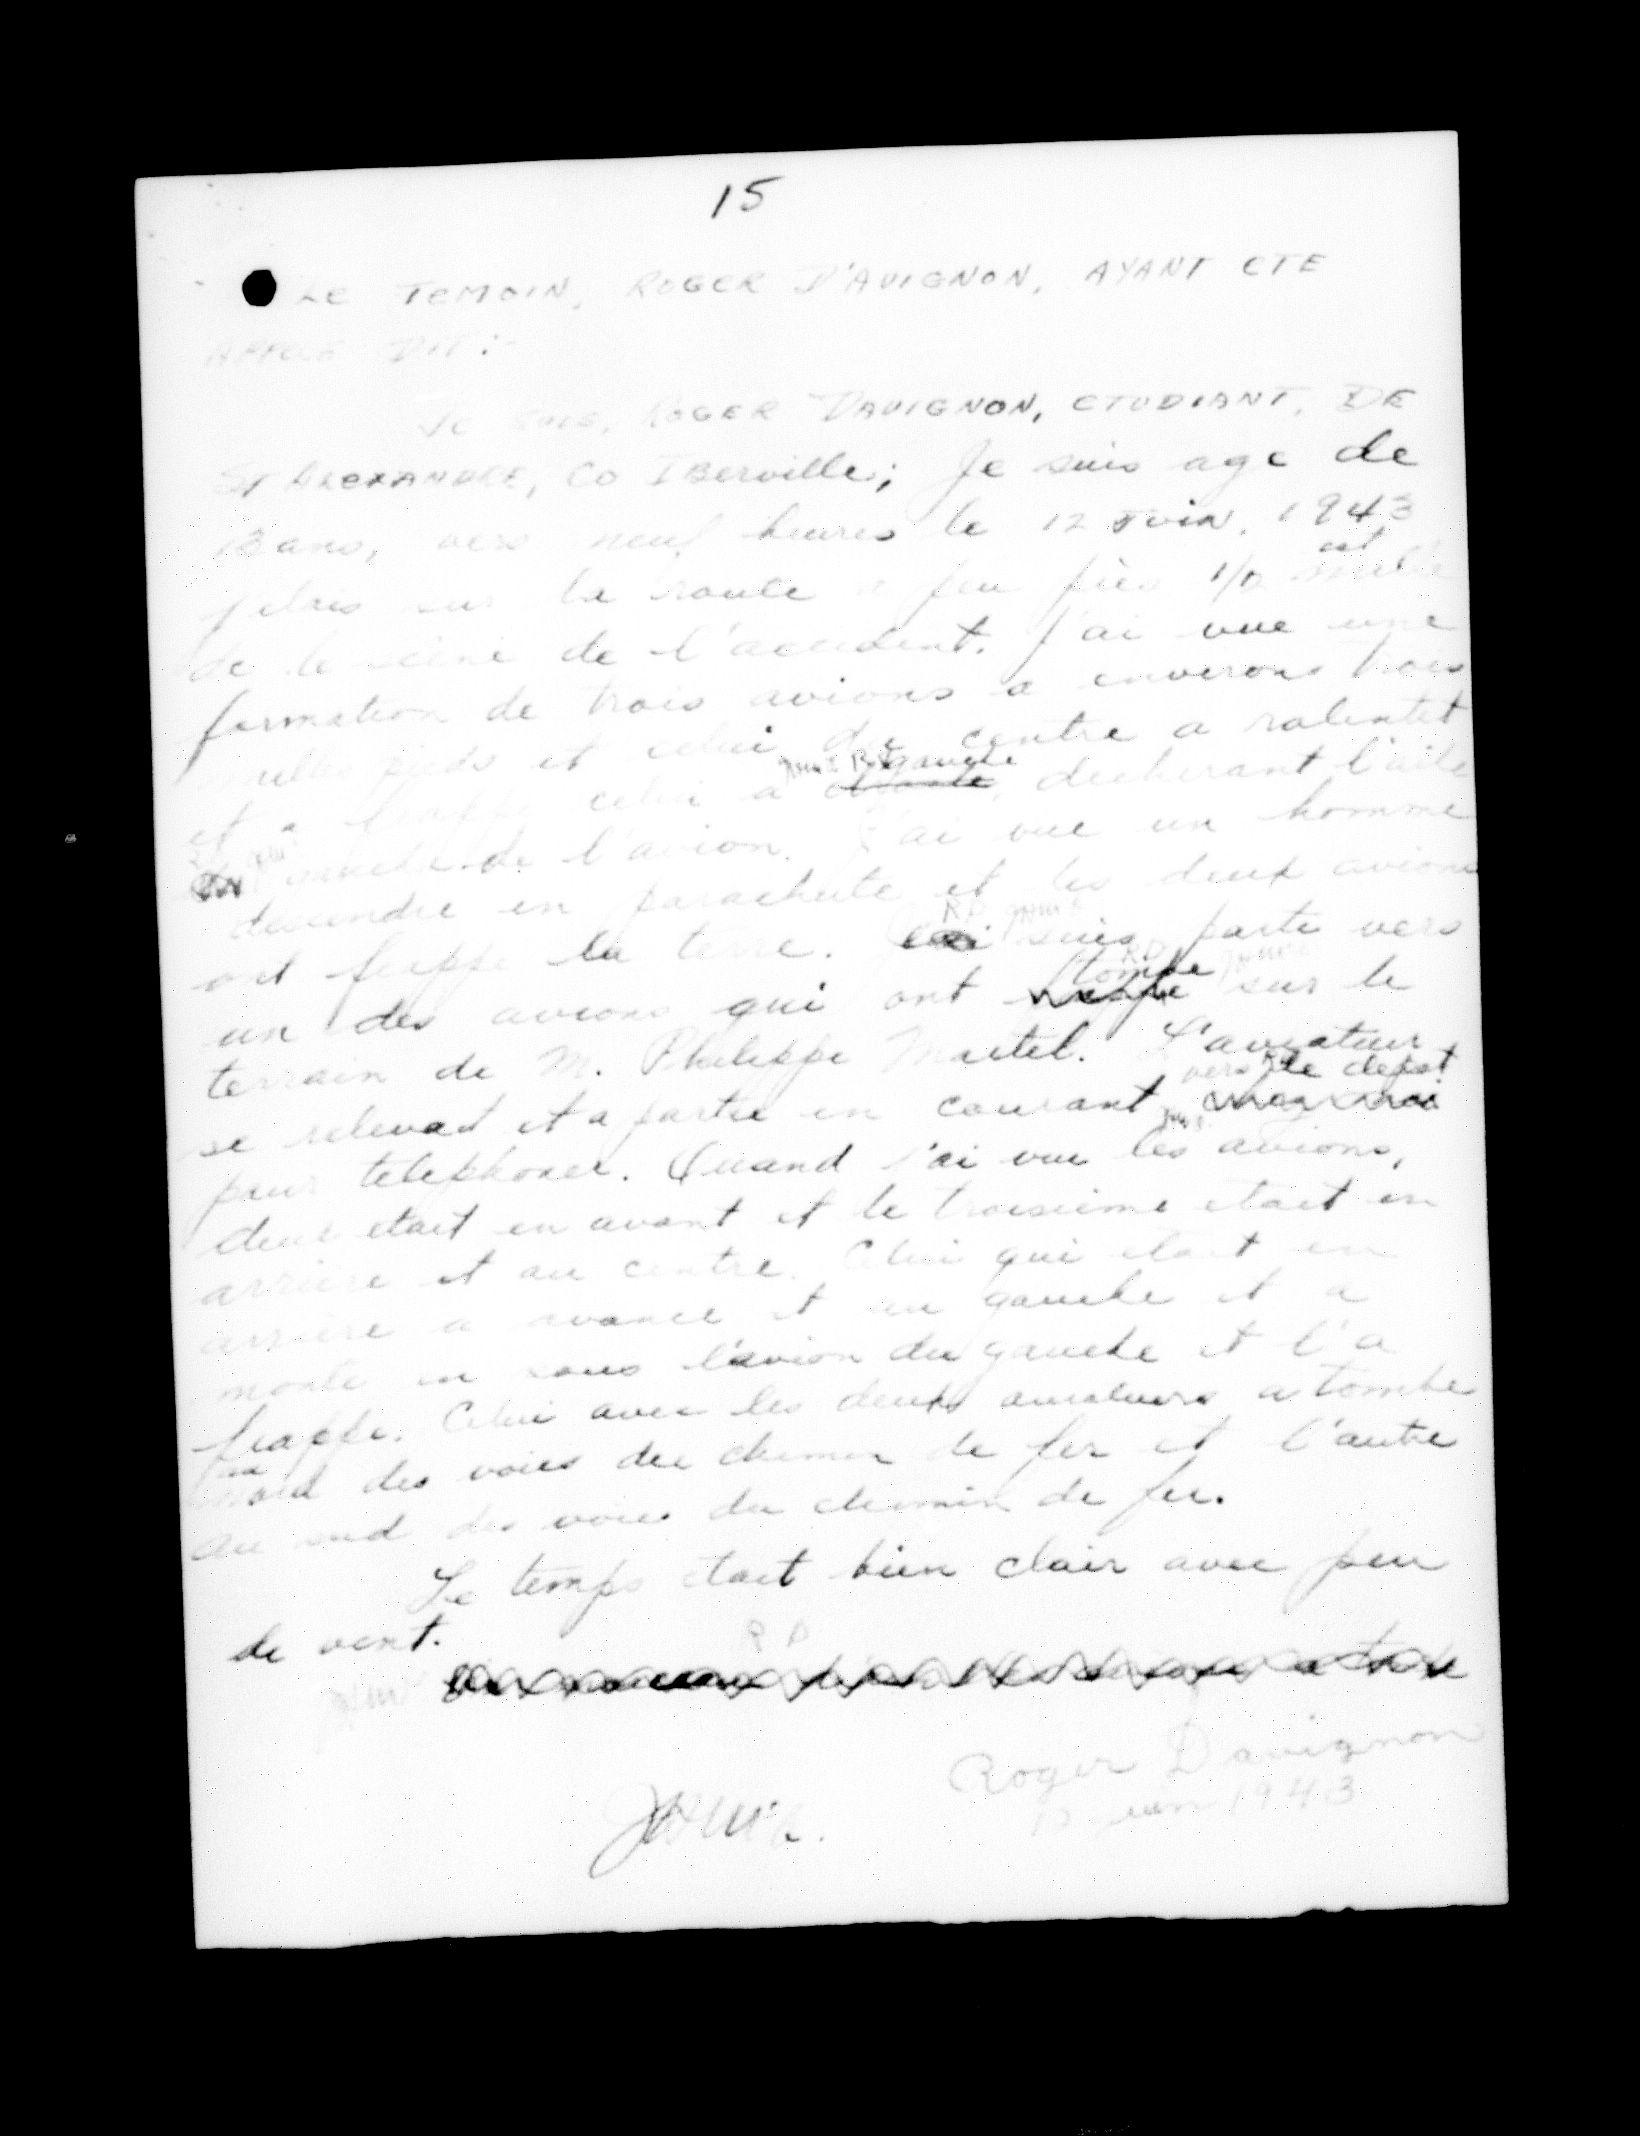 15
LE TEMOIN, ROGER D'AVIGNON, AYANT ETE
APPELE DIT:-
JE SUIS, ROGER DAVIGNON, ETUDIANT, DE
ST ALEXANDRE, CO IBerville; Je suis age de
ans, vers neuf heures le 12 JUIN, 1943
j'etais sur la route a peu pres 1/2 mille est
de la scene de l'accident. J'ai vue une
formation de trois avions a environs trois
milles pieds et celui du centre a ralentit
et a frappe celui a gauche, dechirant l'aile
gauche de l'avion. J'ai vue un homme
descendre en parachute et les deux avions
ont frappe la terre. suis partie vers
un des avions qui ont tombe sur le
terrain de M. Philippe Martel. L'aviateur
se relevat et a partie en courant vers le depot
pour telephoner. Quand j'ai vue les avions,
deux etait en avant et le troisieme etait en
arriere et au centre. Celui qui etait en
arriere a avance et au gauche et a
monte en sous l'avion du gauche et l'a
frappe. Celui avec les deux aviateurs a tombe
au nord des voies du chemin de fer et l'autre
au sud des voies du chemin de fer.
Le temps etait bien clair avec peu
de vent.
RD
Roger Davignon
12 juin 1943